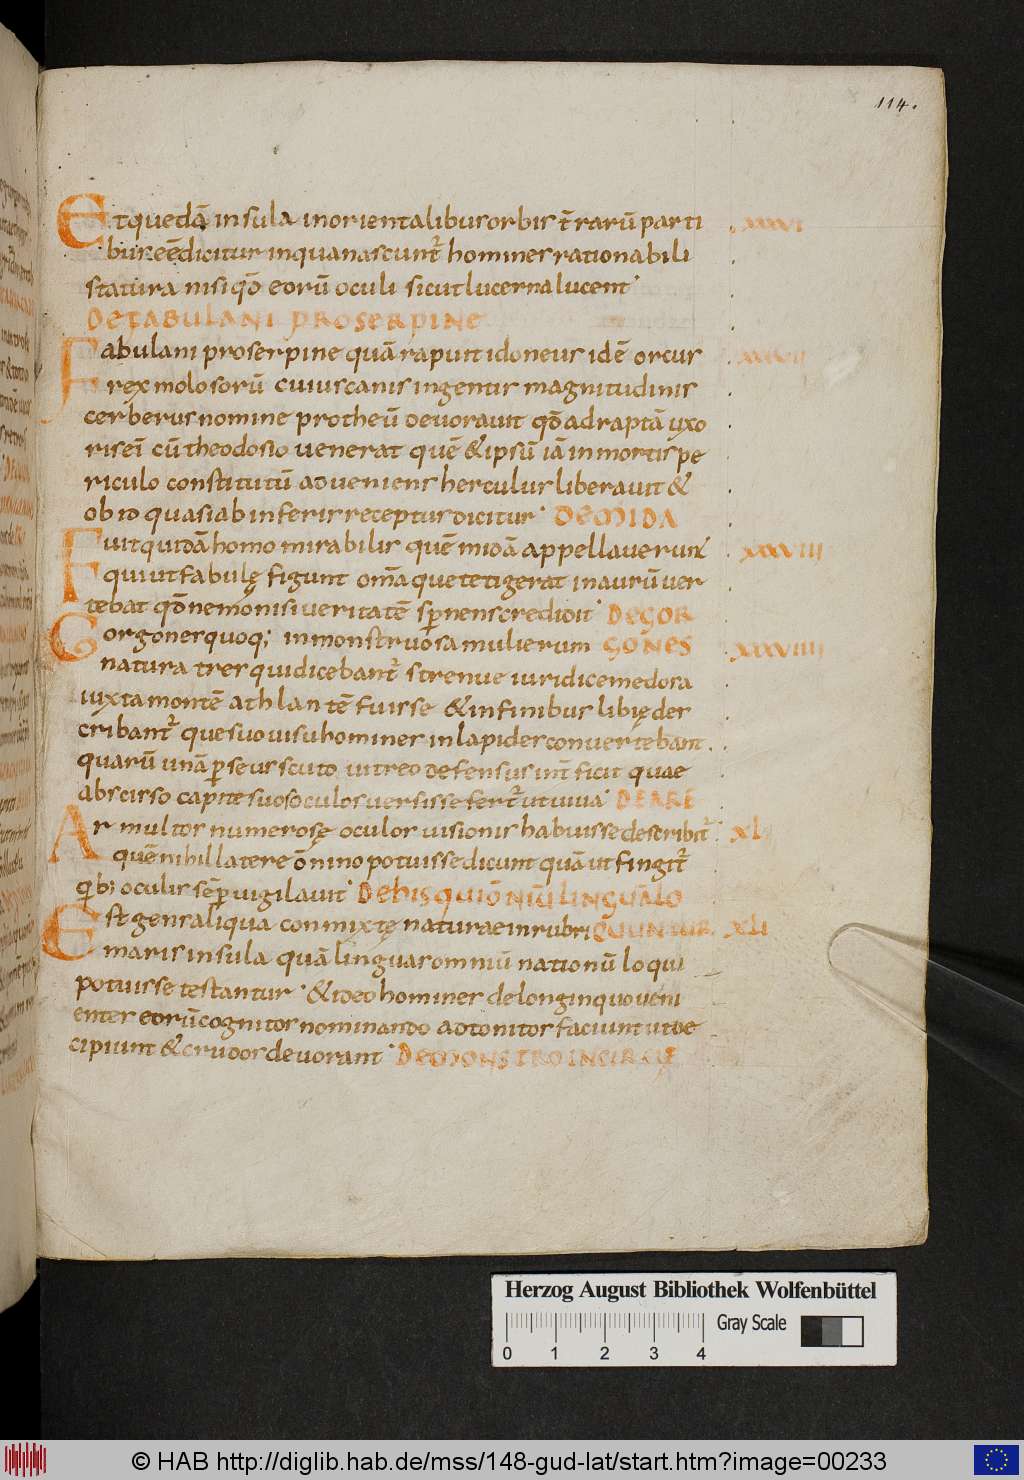 114.
Et quedā insula in orientalibus orbis t̄rarū parti XXXVI
bus eē dicitur in qua nascunt̄ homines rationabili
statura nisi qđ eorū oculi sicut lucerna lucent
DE FABULANI PROSERPINE
Fabulani proserpine quā rapuit idoneus idē orcus XXXVII
rex molosorū cuius canis ingentis magnitudinis
cerberus nomine protheū devoravit qđ ad raptā uxo
ris eī cū theodosio venerat quē & ipsū iā in mortis pe
riculo constitutū adveniens herculus liberavit &
ob id quasi ab inferis receptus dicitur DE MIDA
Fuit quidā homo mirabilis quē midā appellaverunt XXXVIII
qui ut fabulę figunt om̄a que tetigerat in aurū ver
tebat qđ nemo nisi veritatē spnens credidit DE GOR
Gorgones quoq; in monstruosa mulierum GONES XXXVIIII
natura tres qui dicebant̄ strenue iuridice medosa
iuxta montē athlantē fuisse & in finibus libię des
cribant̄ que suo visu homines in lapides convertebant
quarū unā pseus scuto vitreo defensus int̄ficit quae
absciso capite suos oculos versisse fert̄ ut viva DE ARE
Ar multos numerosę oculos visionis habuisse describit̄ XL
quē nihil latere ōnino potuisse dicunt quā ut fingit̄
qib; oculis sēp vigilavit DE his qui ōniū linguā lo
Est gens aliqua conmixtę naturae in rubri QUUNTUR XLI
maris insula quā linguas omniū nationū loqui
potuisse testantur & ideo homines de longinquo veni
entes eorū cognitos nominando adtonitos faciunt ut de
cipiunt & crudos devorant DE MONSTRO IN CIRCE
Herzog August Bibliothek Wolfenbüttel
Gray Scale
0 1 2 3 4
© HAB http://diglib.hab.de/mss/148-gud-lat/start.htm?image=00233